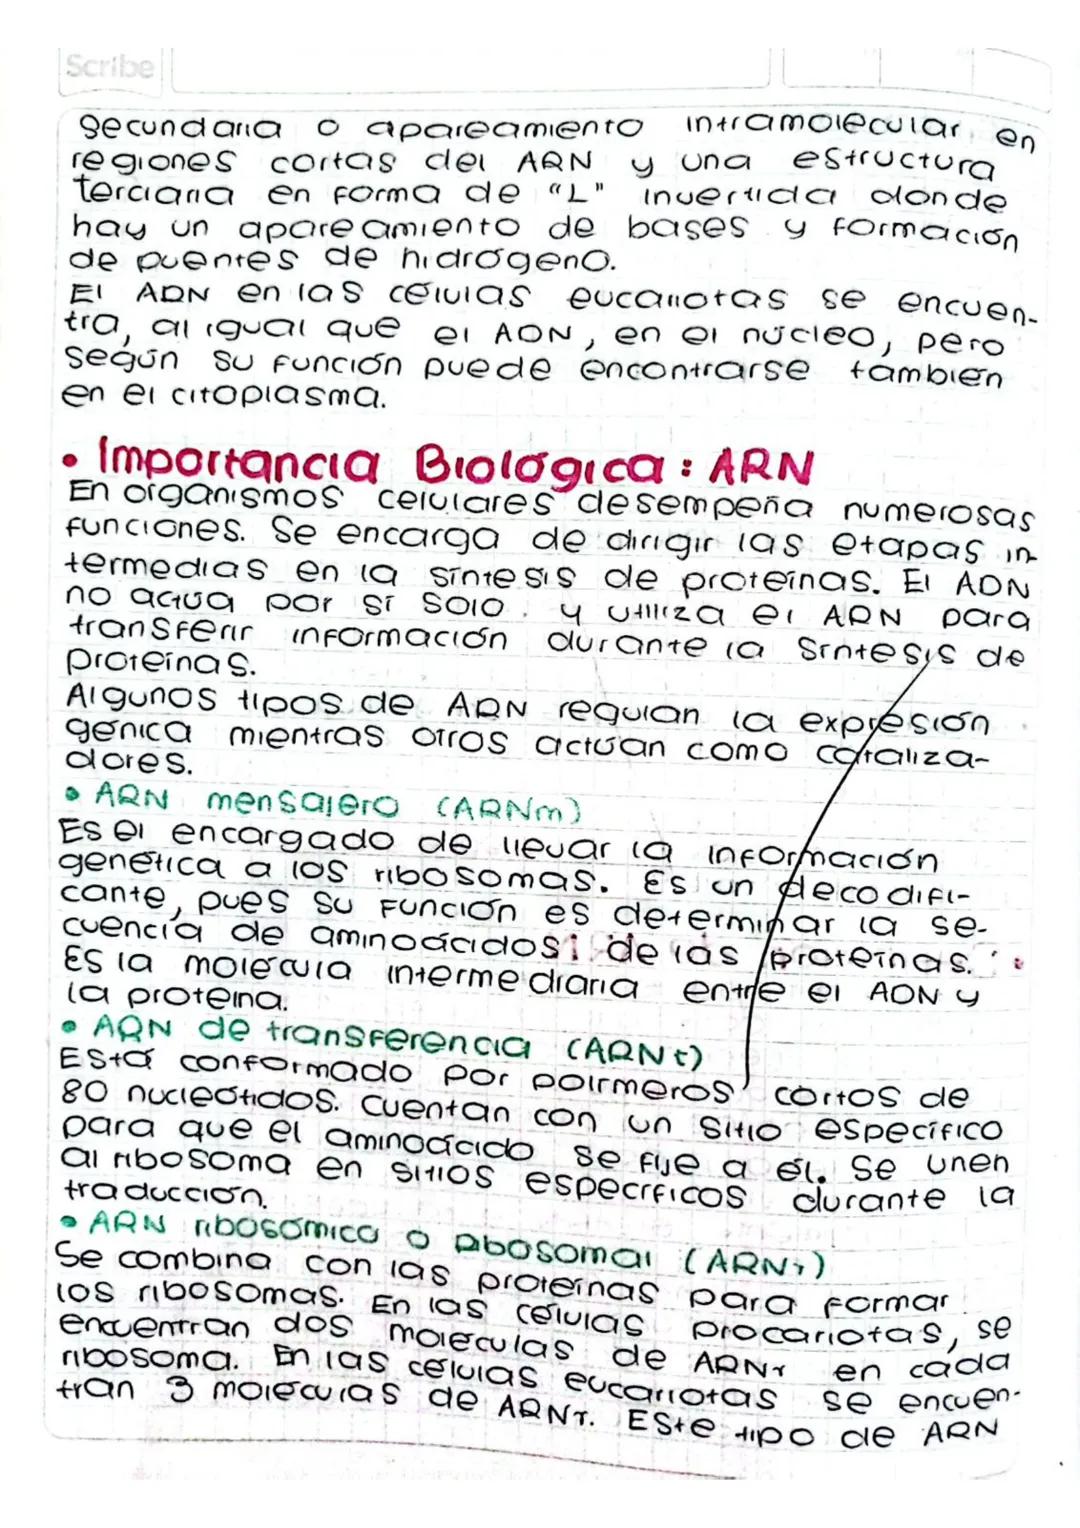 Scribe
secundaria o apareamiento intramolecular en
regiones cortas del ARN y una estructura
terciaria en forma de "L" invertida donde
hay un apareamiento de bases y formación
de puentes de hidrógeno.
El ADN en las células eucariotas se encuen-
tra, al igual que el ADN, en el núcleo, pero
según su función puede encontrarse también
en el citoplasma.
• Importancia Biológica: ARN
En organismos celulares desempeña numerosas
funciones. Se encarga de dirigir las etapas in
termedias en la síntesis de proteínas. El ADN
no actúa por sí solo. y utiliza el ARN para
transferir información durante la síntesis de
proteínas.
Algunos tipos de ARN regulan la expresión
génica mientras otros actúan como cataliza-
dores.
• ARN mensajero (ARNm)
Es el encargado de llevar la información
genética a los ribosomas. Es un decodifi-
cante, pues su función es determinar la se-
cuencia de aminoácidos de las proteínas.
Es la molécula intermediaria entre el ADN y
la proteína.
• ARN de transferencia (ARNt)
Está conformado por polímeros cortos de
80 nucleótidos. Cuentan con un sitio específico
para que el aminoácido se fije a él. Se unen
al ribosoma en sitios específicos durante la
traducción.
• ARN ribosómico o Ribosomal (ARNr)
Se combina con las proteínas para formar
los ribosomas. En las células procariotas, se
encuentran dos moléculas de ARNr en cada
ribosoma. En las células eucariotas se encuen-
tran 3 moléculas de ARNr. Este tipo de ARN